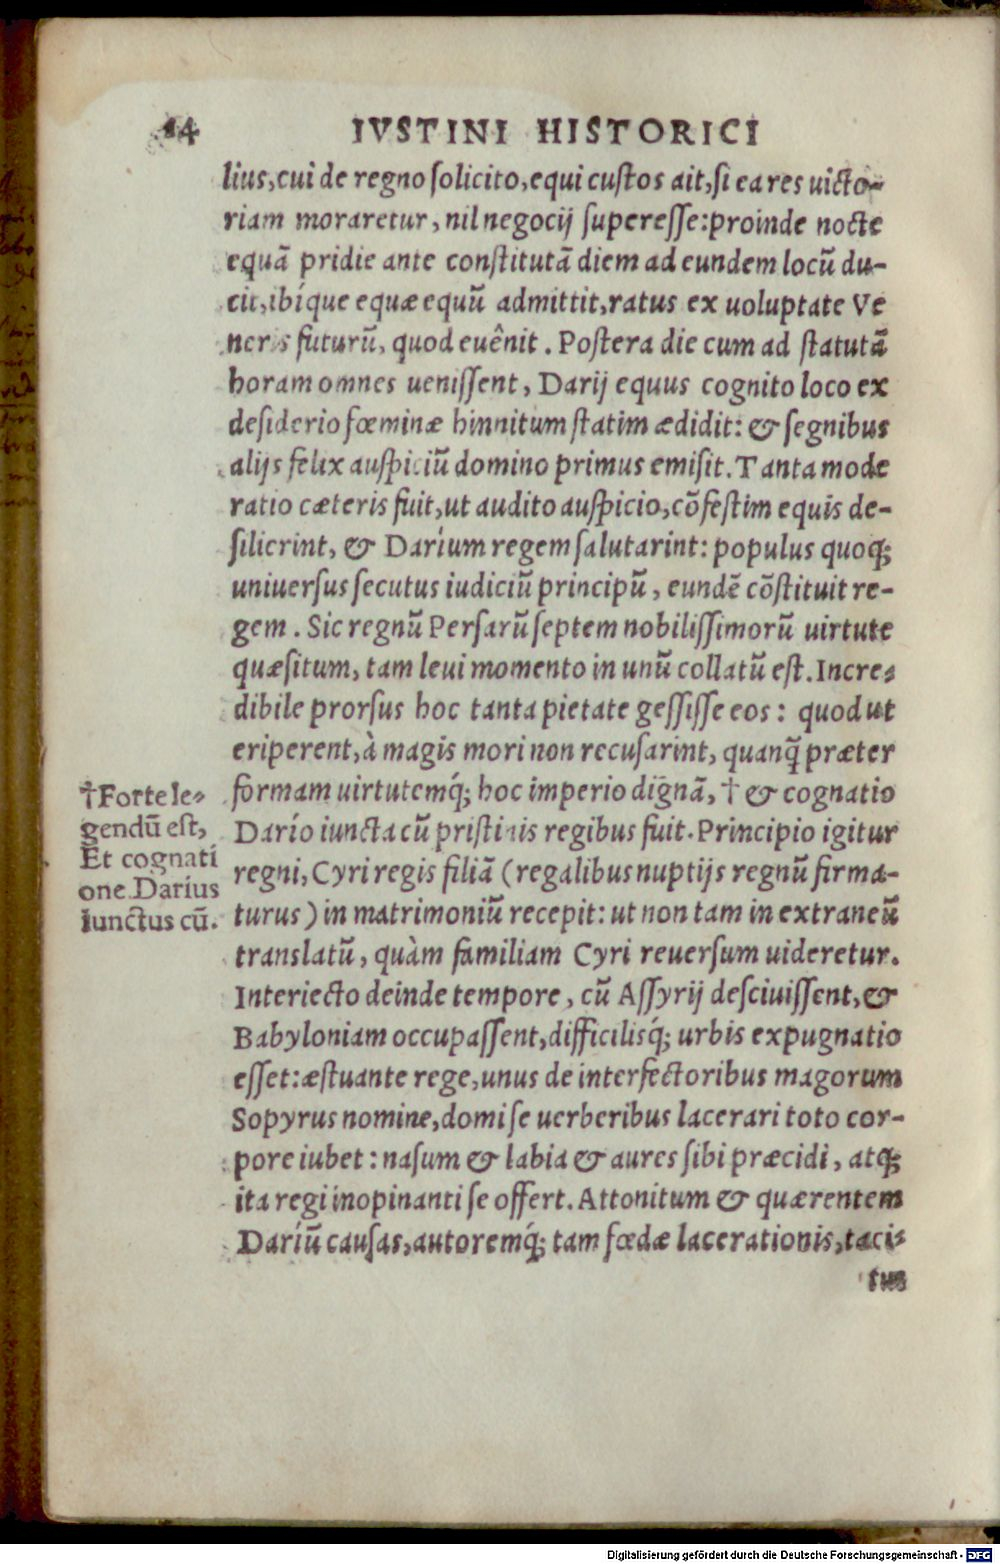 24 IVSTINI HISTORICI
lius, cui de regno solicito, equi custos ait, si ea res uicto-
riam moraretur, nil negocij superesse: proinde nocte
equā pridie ante constitutā diem ad eundem locū du-
cit, ibíque equæ equū admittit, ratus ex uoluptate Ve
neris futurū, quod euênit. Postera die cum ad statutā
horam omnes uenissent, Darij equus cognito loco ex
desiderio fœminæ hinnitum statim ædidit: & segnibus
alijs felix auspiciū domino primus emisit. Tanta mode
ratio cæteris fuit, ut audito auspicio, cōfestim equis de-
silierint, & Daríum regem salutarint: populus quoq;
uniuersus secutus iudiciū principū, eundē cōstituit re-
gem. Sic regnū Persarū septem nobilissimorū uirtute
quæsitum, tam leui momento in unū collatū est. Incre-
dibile prorsus hoc tanta pietate gessisse eos: quod ut
eriperent, à magis mori non recusarint, quanq̃ præter
formam uirtutemq́; hoc imperio dignā, † & cognatio
Darío iuncta cū pristinis regibus fuit. Principio igitur
regni, Cyri regis filiā (regalibus nuptijs regnū firma-
turus) in matrimoniū recepit: ut non tam in extraneū
translatū, quàm familiam Cyri reuersum uideretur.
Interiecto deinde tempore, cū Assyrij desciuissent, &
Babyloniam occupassent, difficilisq́; urbis expugnatio
esset: æstuante rege, unus de interfectoribus magorum
Sopyrus nomine, domi se uerberibus lacerari toto cor-
pore iubet: nasum & labia & aures sibi præcidi, atq;
ita regi inopinanti se offert. Attonitum & quærentem
Daríū causas, autoremq́; tam fœdæ lacerationis, taci-
tus
†Forte le-
gendū est,
Et cognati
one Daríus
iunctus cū.
Digitalisierung gefördert durch die Deutsche Forschungsgemeinschaft - DFG